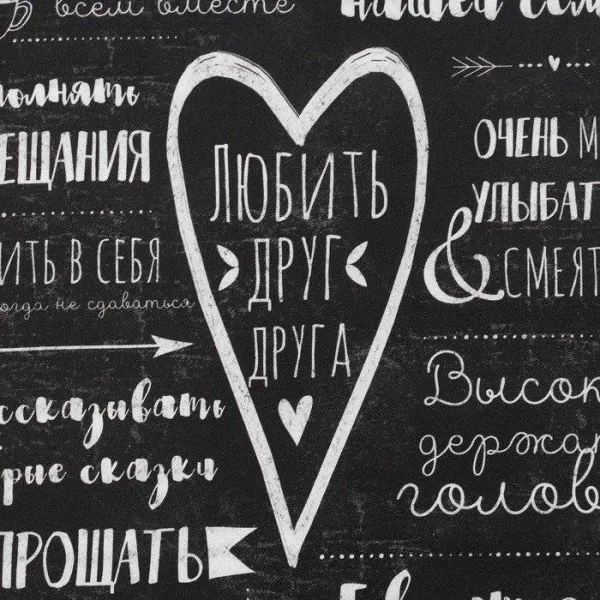 всем вместе
нашей сем
полнять
ещания
ить в себя
когда не сдаваться
ссказывать
рые сказки
прощать
Любить
друг
друга
очень м
улыбат
&
смеят
Высок
держат
голов